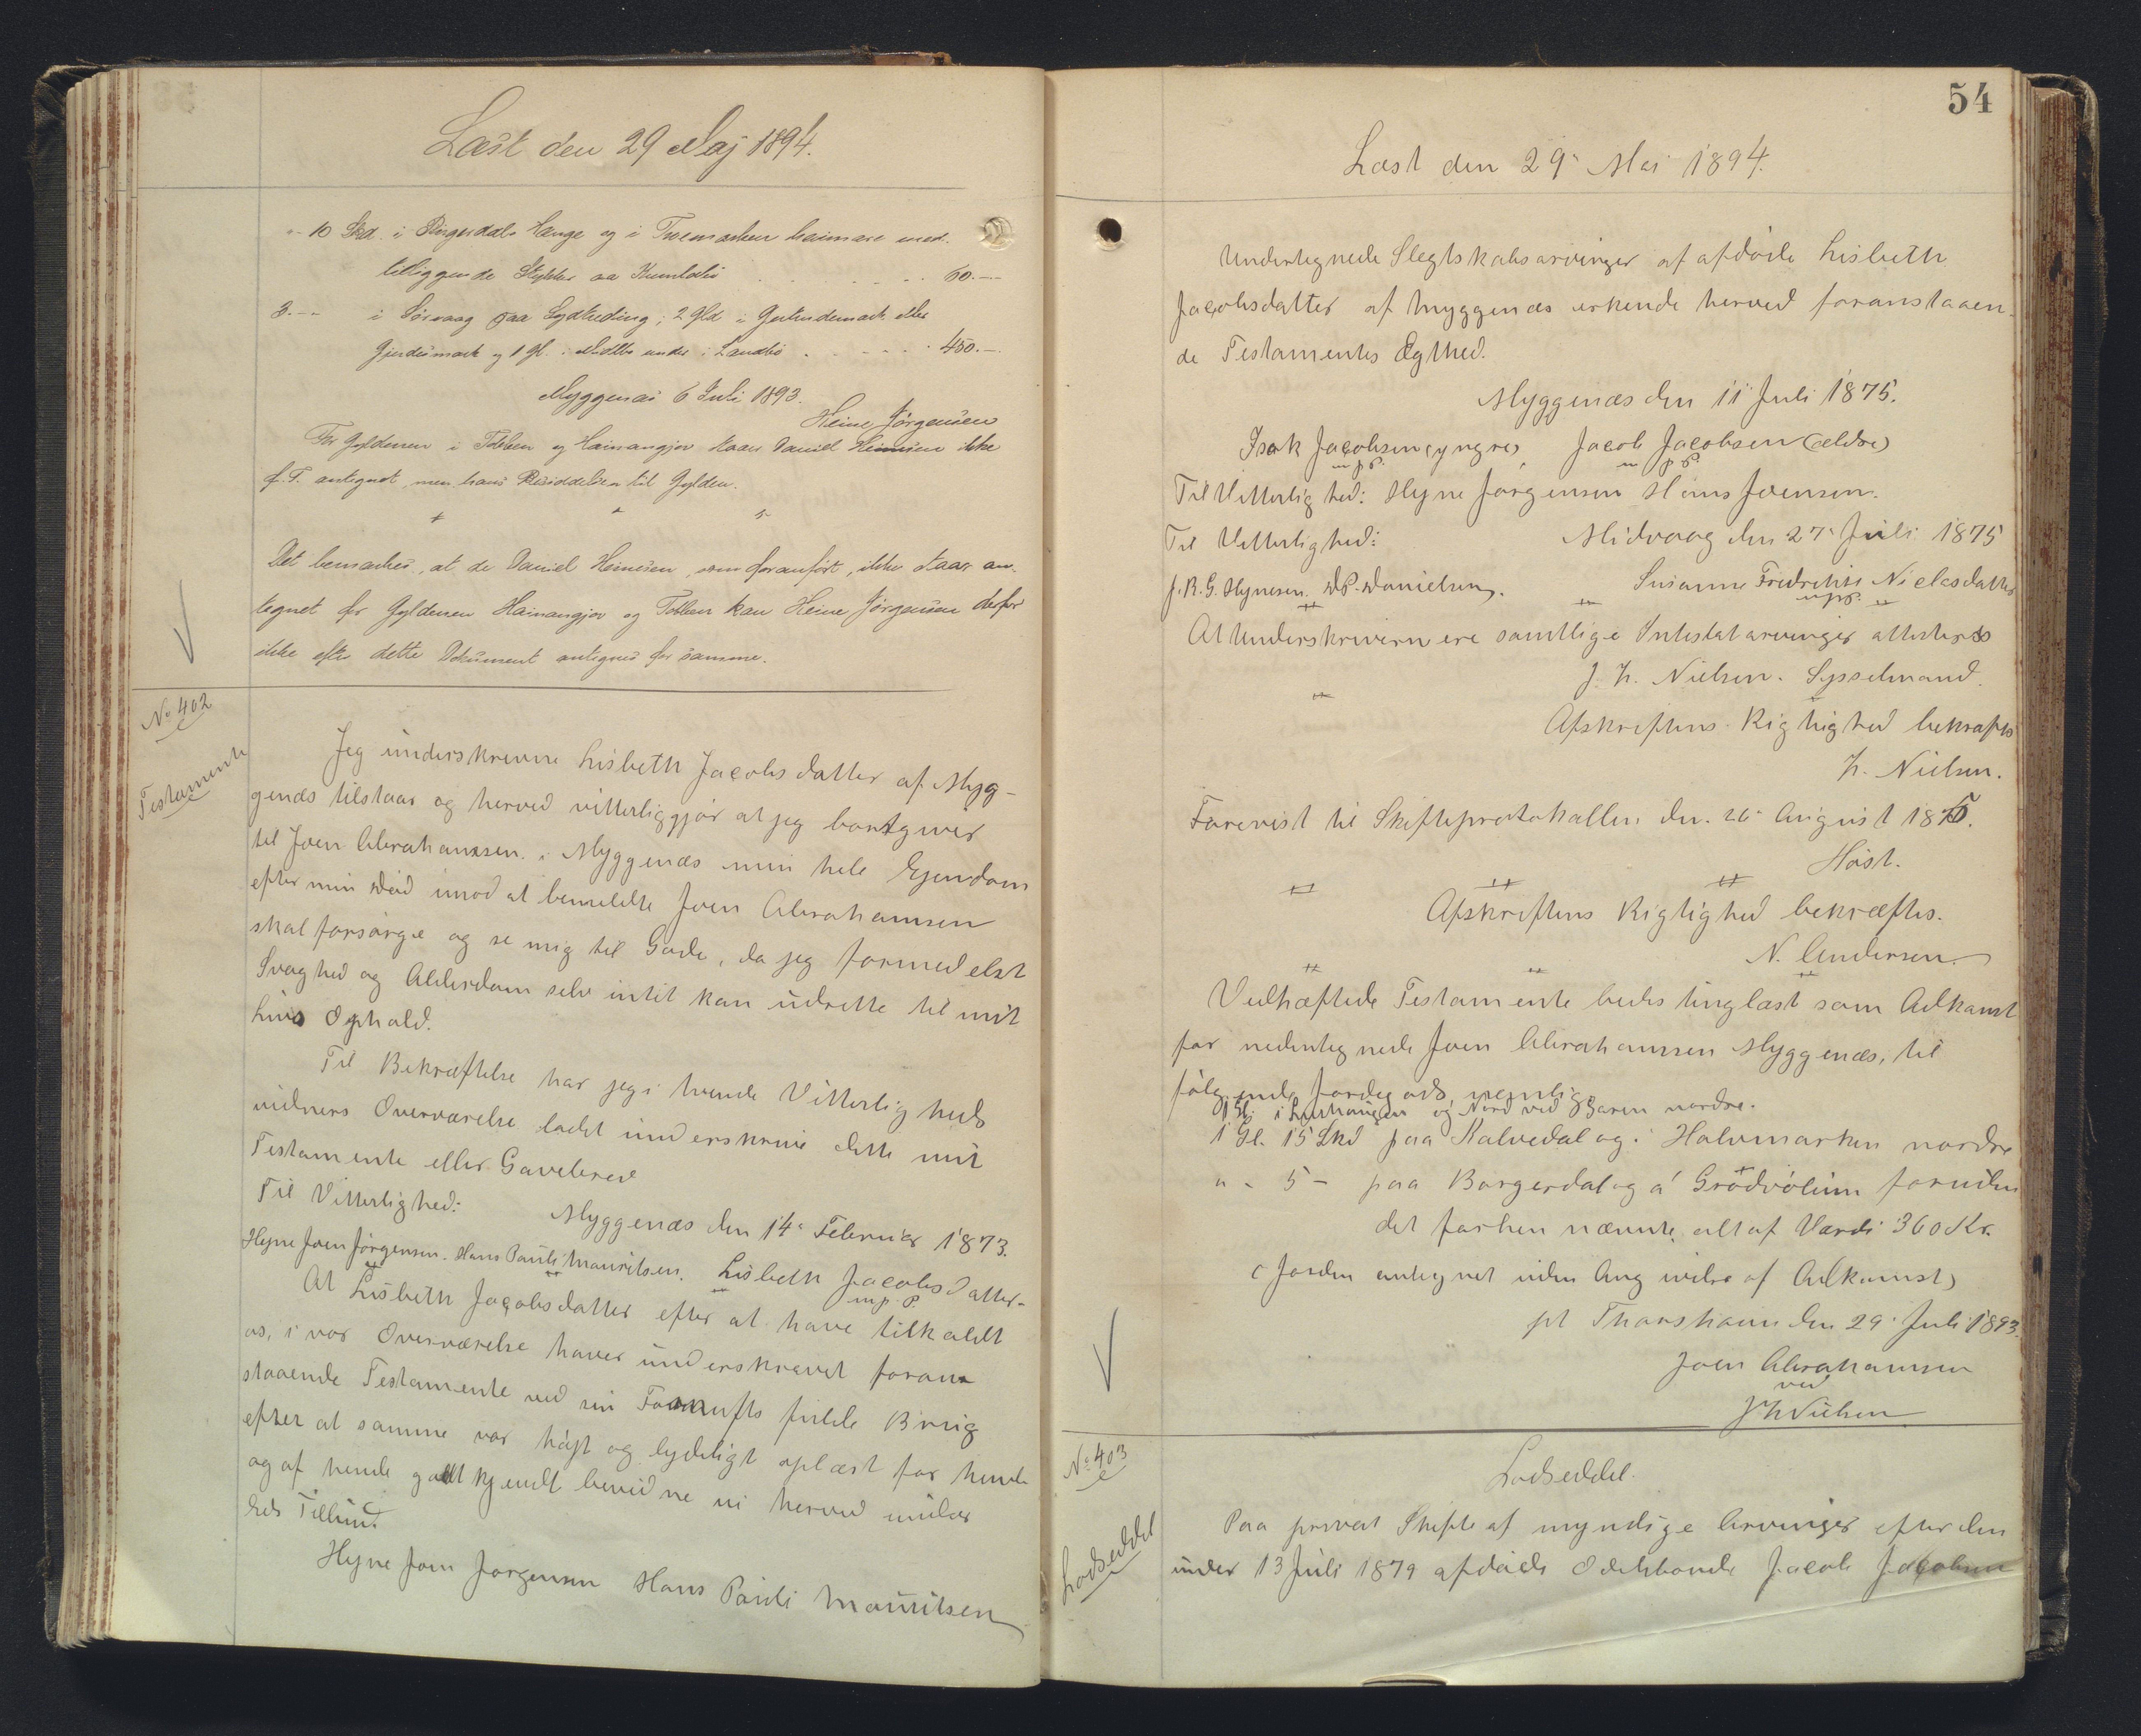 Læst den 29 Maj 1894.
" 10 Skd. i Ringerdals Hauge og i Toemarken haimare med
tilliggende Stykker aa Kumlebø . . . . . . 60.—
3. – " i Sörvaag paa Sydtueding; 2 Gld i Gertrudemark eller
Gjerdesmark og 1 Gl. i Midlbo under i Landbö . . . . . 450.—
Myggenæs 6 Juli 1893.
Heine Jörgensen
For Gyldenen i Toblen og Hamangjov staar Daniel Heinesen ikke
p. T. antegnet, men hans Besiddelse til Gylden.
Det bemærkes, at da Daniel Heinesen, som foranført, ikke staar an-
tegnet for Gyldenen Hamangjov og Toblen kan Heine Jörgensen derfor
ikke efter dette Dokument antegnes for samme.
No 402
Testamente
Jeg underskrevne Lisbeth Jacobsdatter af Myg-
genæs tilstaar og herved vitterliggjør at jeg bortgiver
til Joen Abrahamsen i Myggenæs min hele Ejendom
efter min Død imod at bemeldte Joen Abrahamsen
skal forsørge og se mig til Gode, da jeg formedelst
Svaghed og Alderdom selv intet kan udrette til mit
Livs Ophold.
Til Bekræftelse har jeg i tvende Vitterligheds
vidners Overværelse ladet underskrive dette mit
Testamente eller Gavebrev
Til Vitterlighed:
Myggenæs den 14 Februar 1873.
Hejne Joen Jörgensen. Hans Pauli Mauritsen. Lisbeth Jacobsdatter.
m. p. P.
At Lisbeth Jacobsdatter efter at have tilkaldt
os, i vor Overværelse haver underskrevet foran
staaende Testamente ved sin Fornufts fulde Brug
efter at samme var højt og lydeligt oplæst for hende
og af hende godtkjendt bevidne vi herved under
Eds Tilbud.
Hejne Joen Jörgensen Hans Pauli Mauritsen
54
Læst den 29 Mai 1894.
Undertegnede Slegtskabsarvinger af afdøde Lisbeth
Jacobsdatter af Myggenæs erkende herved foranstaaen-
de Testamentes Ægthed.
Myggenæs den 11 Juli 1875.
Isak Jacobsen (yngre) Jacob Jacobsen (ældre)
m p P. m p P.
Til Vitterlighed: Hejne Jørgensen Hans Joensen.
Til Vitterlighed: Midvaag den 27 Juli 1875
J. R. G. Hejnesen. D P. Danielsen. Susanne Fredrikke Nielsdatter
m p P.
At Underskriverne ere samtlige Intestatarvinger attesteres
J. H. Nielsen. Sysselmand.
Afskriftens Rigtighed bekræftes
H. Nielsen.
Forevist til Skifteprotokollen den 26 August 1875.
Høst.
Afskriftens Rigtighed bekræftes.
N. Andersen.
Vedhæftede Testamente bedes tinglæst som Adkomst
for nedentegnede Joen Abrahamsen Myggenæs, til
følgende Jordegods, nemlig:
1 Gl. i Lynhaugen og Nord ved Garen nordre.
1 Gl. 15 Skd paa Kalvedal og i Halvmarken nordre
" - 5 - paa Borgerdal og á Grödvölum foruden
det forhen nævnte, alt af Værdi 360 Kr.
(Jorden antegnet uden Angivelse af Adkomst)
pt Thorshavn den 29 Juli 1893.
Joen Abrahamsen
ved
J H Nielsen
No 403
Lodseddel
Lodseddel.
Paa privat Skifte af myndige Arvinger efter den
under 13 Juli 1879 afdøde Odelsbonde Jacob Jacobsen